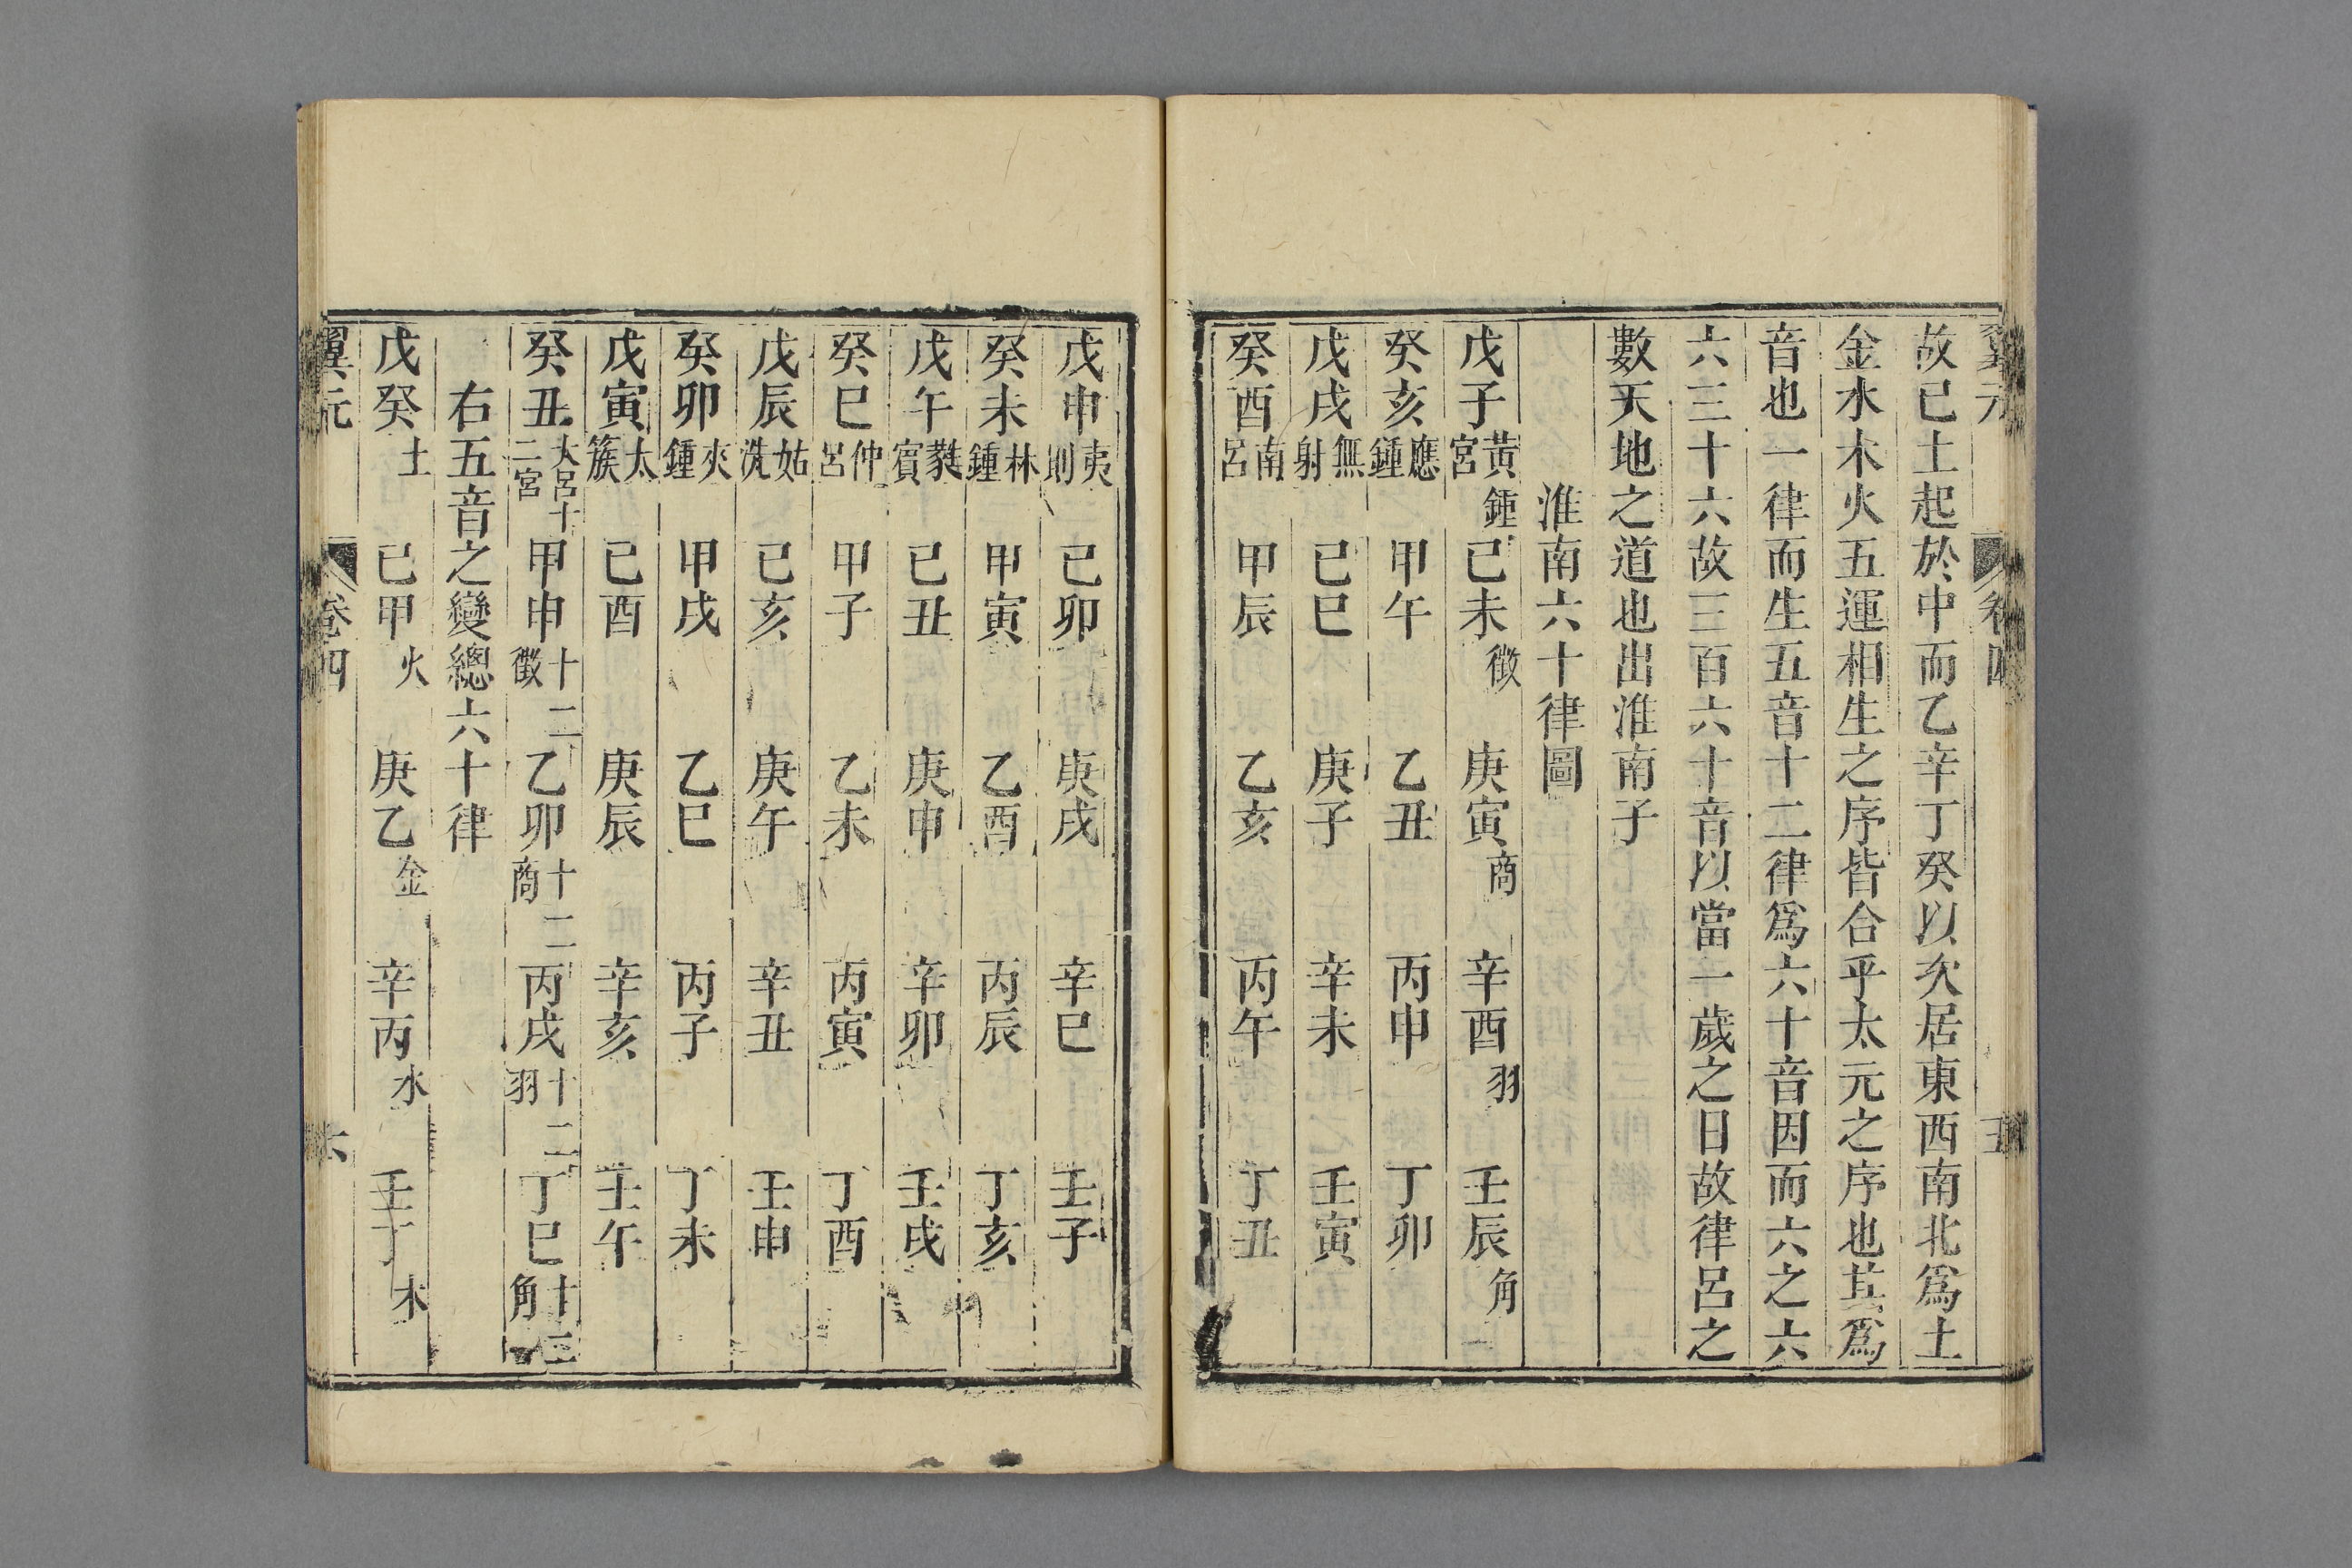 翼元 卷四 五
故己土起於中而乙辛丁癸以次居東西南北爲土
金水木火五運相生之序皆合乎太元之序也其爲
音也一律而生五音十二律爲六十音因而六之六
六三十六故三百六十音以當一歲之日故律呂之
數天地之道也出淮南子
淮南六十律圖
戊子 黃鍾宮 己未 徵 庚寅 商 辛酉 羽 壬辰 角
癸亥 應鍾 甲午 乙丑 丙申 丁卯
戊戌 無射 己巳 庚子 辛未 壬寅
癸酉 南呂 甲辰 乙亥 丙午 丁丑
戊申 夷則 己卯 庚戌 辛巳 壬子
癸未 林鍾 甲寅 乙酉 丙辰 丁亥
戊午 蕤賓 己丑 庚申 辛卯 壬戌
癸巳 仲呂 甲子 乙未 丙寅 丁酉
戊辰 姑洗 己亥 庚午 辛丑 壬申
癸卯 夾鍾 甲戌 乙巳 丙子 丁未
戊寅 太簇 己酉 庚辰 辛亥 壬午
癸丑 大呂十二宮 甲申 十二徵 乙卯 十二商 丙戌 十二羽 丁巳 十二角
右五音之變總六十律
戊癸 土 己甲 火 庚乙 金 辛丙 水 壬丁 木
翼元 卷四 六